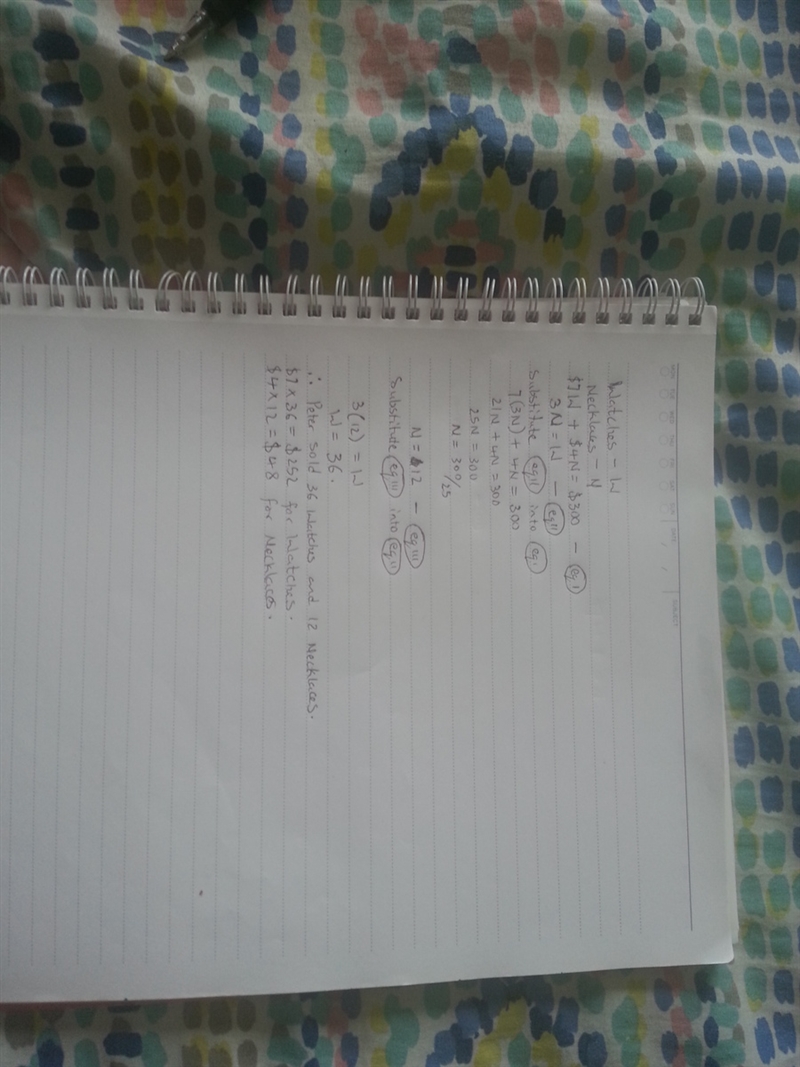 Watches - W
Necklaces - N
$7W + $4N = $300 - eq I
3N = W - eq II
Substitute eq II into eq I
7(3N) + 4N = 300
21N + 4N = 300
25N = 300
N = 300/25
N = 12 - eq III
Substitute eq III into eq II
3(12) = W
W = 36.
∴ Peter sold 36 Watches and 12 Necklaces.
$7 x 36 = $252 for Watches.
$4 x 12 = $48 for Necklaces.